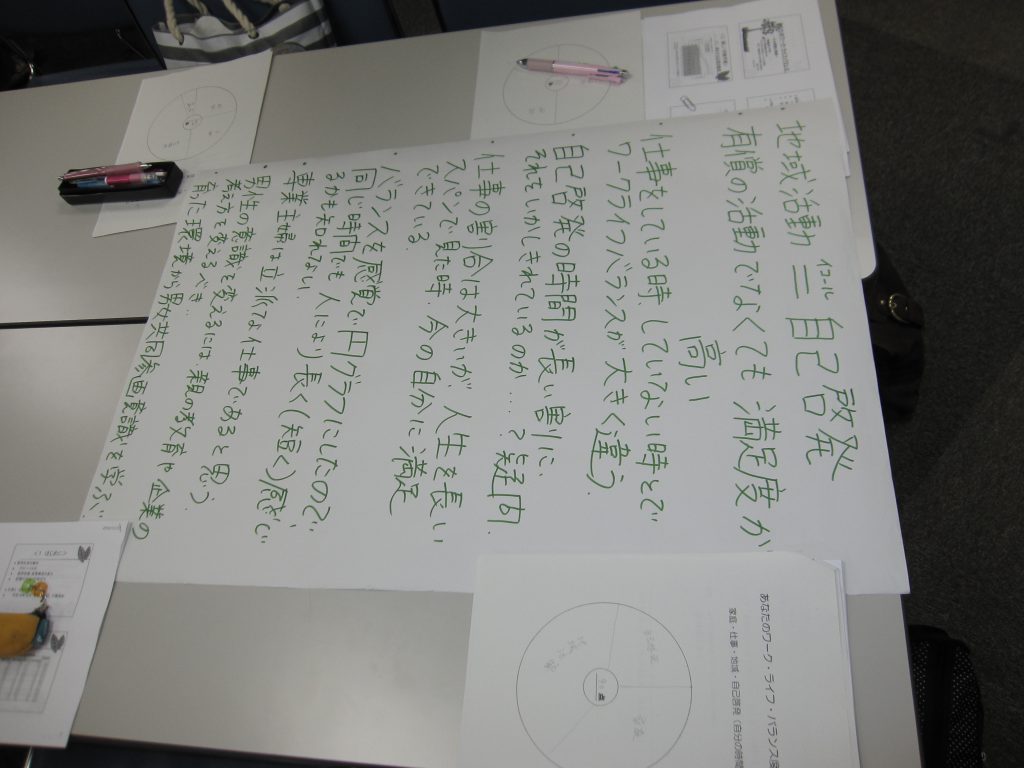 地域活動 = 自己啓発
イコール
有償の活動でなくても 満足度が
高い
仕事をしている時、していない時とで
ワークライフバランスが大きく違う。
自己啓発の時間が長い割に、
それをしかしきれているのか…?疑問。
仕事の割合は大きいが、人生を長い
スパンで見た時、今の自分に満足
できている。
バランスを感覚で円グラフにしたので、
同じ時間でも 人により長く(短く)感じ
るかも知れない。
専業主婦は立派な仕事であると思う。
男性の意識を変えるには 親の教育や企業の
考え方を変えるべき。
育った環境から男女共同参画意識を学ぶ。
あなたのワーク・ライフ・バランス度
家庭・仕事・地域・自己啓発(自分の時間